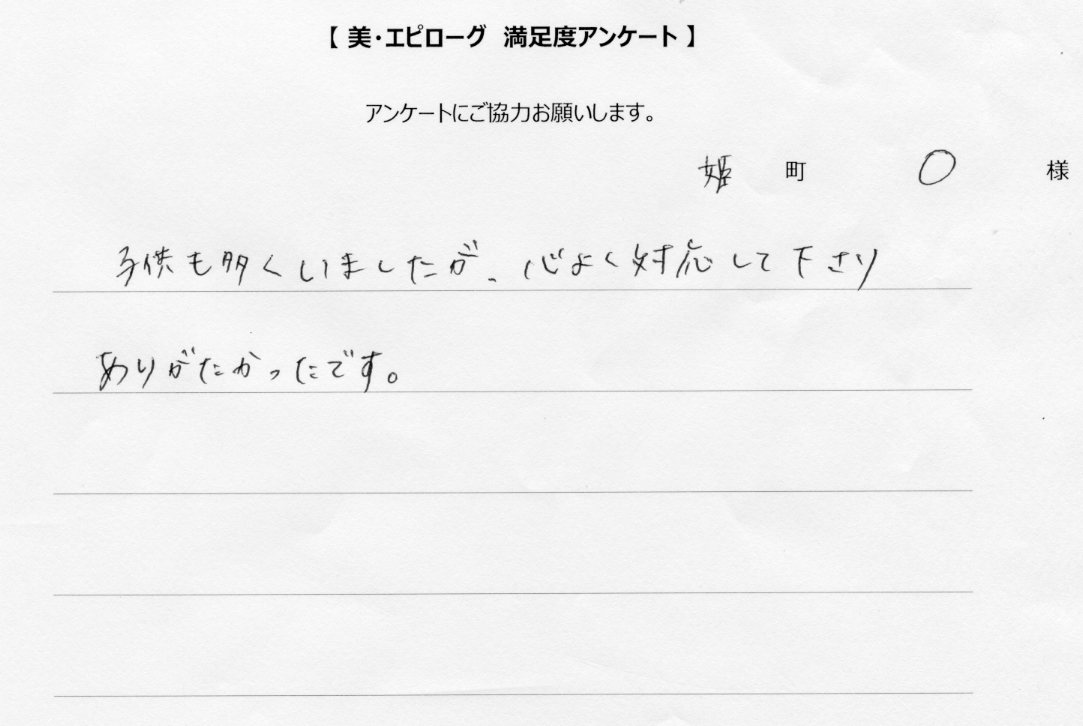 【 美・エピローグ 満足度アンケート 】
アンケートにご協力お願いします。
姫 町 〇 様
子供も多くいましたが、心よく対応して下さり
ありがたかったです。